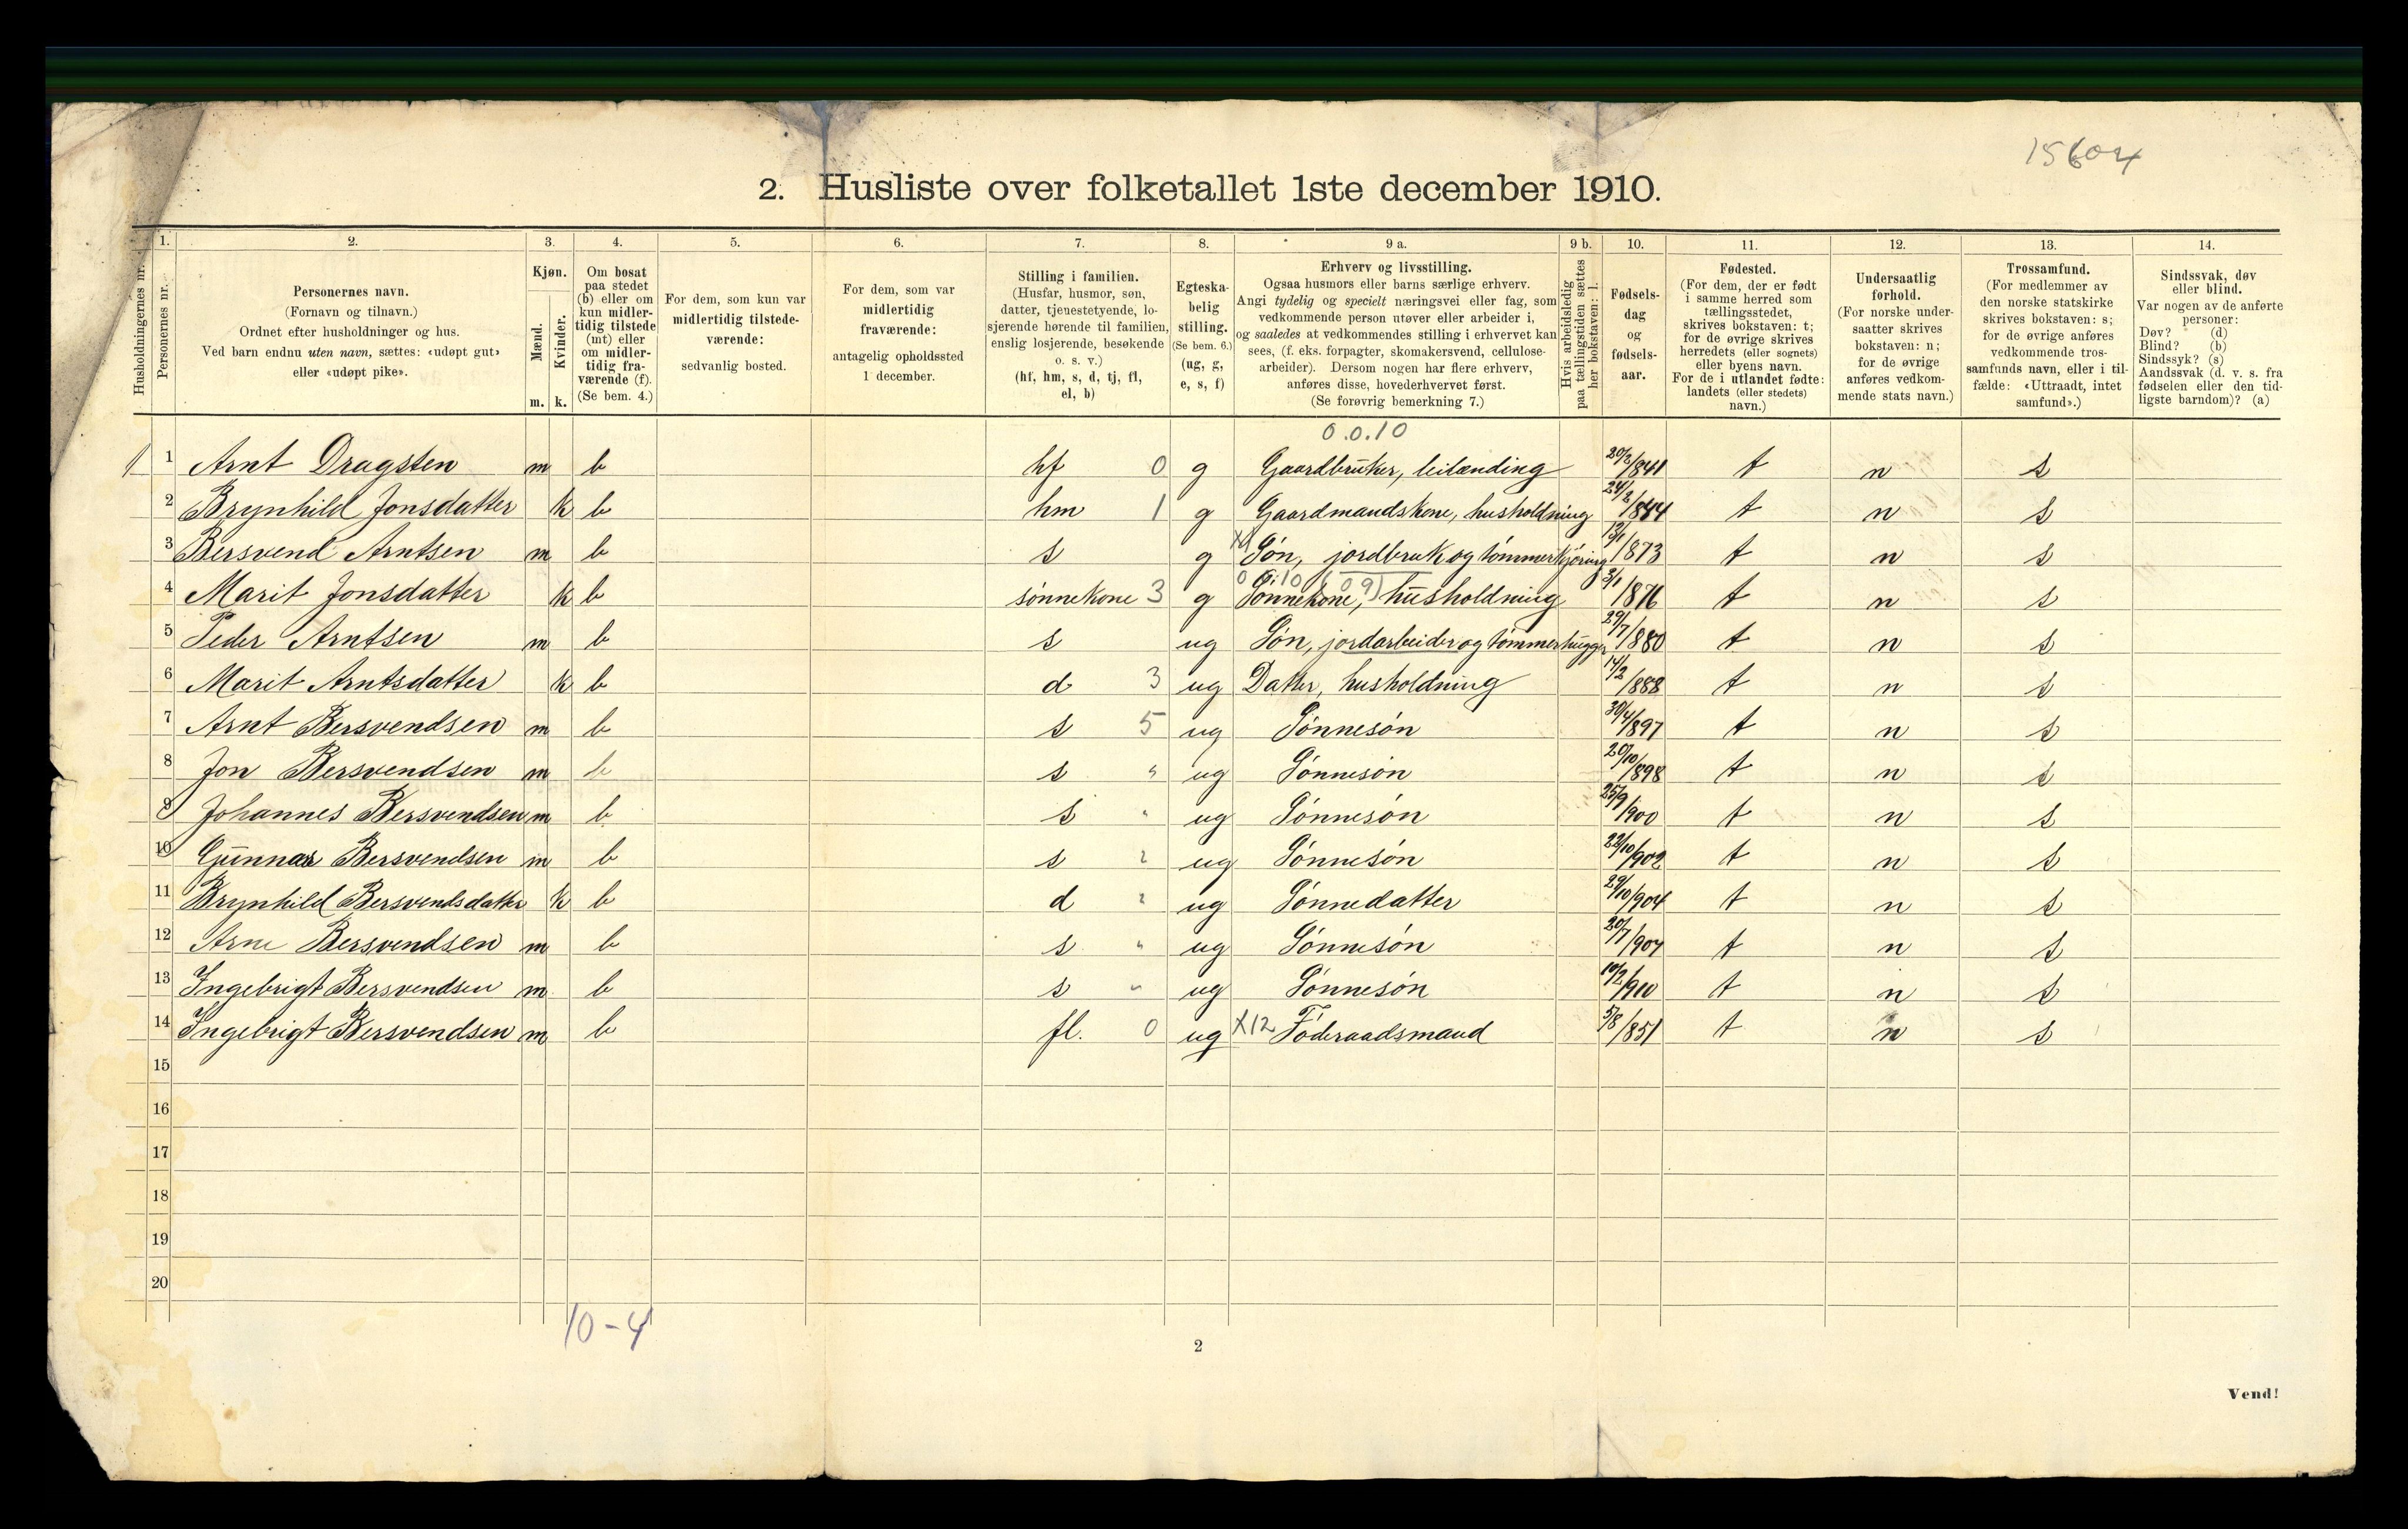 15604
2. Husliste over folketallet 1ste december 1910.
Husholdningernes nr.
1.
Personernes nr.
2.
Personernes navn.
(Fornavn og tilnavn.)
Ordnet efter husholdninger og hus.
Ved barn endnu uten navn, sættes: «udøpt gut»
eller «udøpt pike».
3.
Kjøn.
Mænd.
Kvinder.
m. k.
4.
Om bosat
paa stedet
(b) eller om
kun midler-
tidig tilstede
(mt) eller
om midler-
tidig fra-
værende (f).
(Se bem. 4.)
5.
For dem, som kun var
midlertidig tilstede-
værende:
sedvanlig bosted.
6.
For dem, som var
midlertidig
fraværende:
antagelig opholdssted
1 december.
7.
Stilling i familien.
(Husfar, husmor, søn,
datter, tjenestetyende, lo-
sjerende hørende til familien,
enslig losjerende, besøkende
o. s. v.)
(hf, hm, s, d, tj, fl,
el, b)
8.
Egteska-
belig
stilling.
(Se bem. 6.)
(ug, g,
e, s, f)
9 a.
Erhverv og livsstilling.
Ogsaa husmors eller barns særlige erhverv.
Angi tydelig og specielt næringsvei eller fag, som
vedkommende person utøver eller arbeider i,
og saaledes at vedkommendes stilling i erhvervet kan
sees, (f. eks. forpagter, skomakersvend, cellulose-
arbeider). Dersom nogen har flere erhverv,
anføres disse, hovederhvervet først.
(Se forøvrig bemerkning 7.)
9 b.
Hvis arbeidsledig
paa tællingstiden sættes
her bokstaven: l.
10.
Fødsels-
dag
og
fødsels-
aar.
11.
Fødested.
(For dem, der er født
i samme herred som
tællingsstedet,
skrives bokstaven: t;
for de øvrige skrives
herredets (eller sognets)
eller byens navn.
For de i utlandet fødte:
landets (eller stedets)
navn.)
12.
Undersaatlig
forhold.
(For norske under-
saatter skrives
bokstaven: n;
for de øvrige
anføres vedkom-
mende stats navn.)
13.
Trossamfund.
(For medlemmer av
den norske statskirke
skrives bokstaven: s;
for de øvrige anføres
vedkommende tros-
samfunds navn, eller i til-
fælde: «Uttraadt, intet
samfund».)
14.
Sindssvak, døv
eller blind.
Var nogen av de anførte
personer:
Døv? (d)
Blind? (b)
Sindssyk? (s)
Aandssvak (d. v. s. fra
fødselen eller den tid-
ligste barndom)? (a)
0.0.10
1 1 Arnt Dragsten m b hf 0 g Gaardbruker, leilænding 20/2/841 t n s
2 Brynhild Jonsdatter k b hm 1 g Gaardmandskone, husholdning 24/2/844 t n s
3 Bersvend Arntsen m b s g Søn, jordbruk og tømmerkjøring 13/1/873 t n s
4 Marit Jonsdatter k b sønnekone 3 g Sønnekone, husholdning 3/1/876 t n s
5 Peder Arntsen m b s ug Søn, jordarbeider og tømmerhugger 29/7/880 t n s
6 Marit Arntsdatter k b d 3 ug Datter, husholdning 14/2/888 t n s
7 Arnt Bersvendsen m b s 5 ug Sønnesøn 30/4/897 t n s
8 Jon Bersvendsen m b s " ug Sønnesøn 20/10/898 t n s
9 Johannes Bersvendsen m b s " ug Sønnesøn 25/9/900 t n s
10 Gunnar Bersvendsen m b s " ug Sønnesøn 22/10/902 t n s
11 Brynhild Bersvendsdatter k b d " ug Sønnedatter 29/10/904 t n s
12 Arne Bersvendsen m b s " ug Sønnesøn 20/7/907 t n s
13 Ingebrigt Bersvendsen m b s " ug Sønnesøn 10/2/910 t n s
14 Ingebrigt Bersvendsen m b fl. 0 ug X12 Føderaadsmand 5/8/851 t n s
15
16
17
18
19
20
10-4
2
Vend!